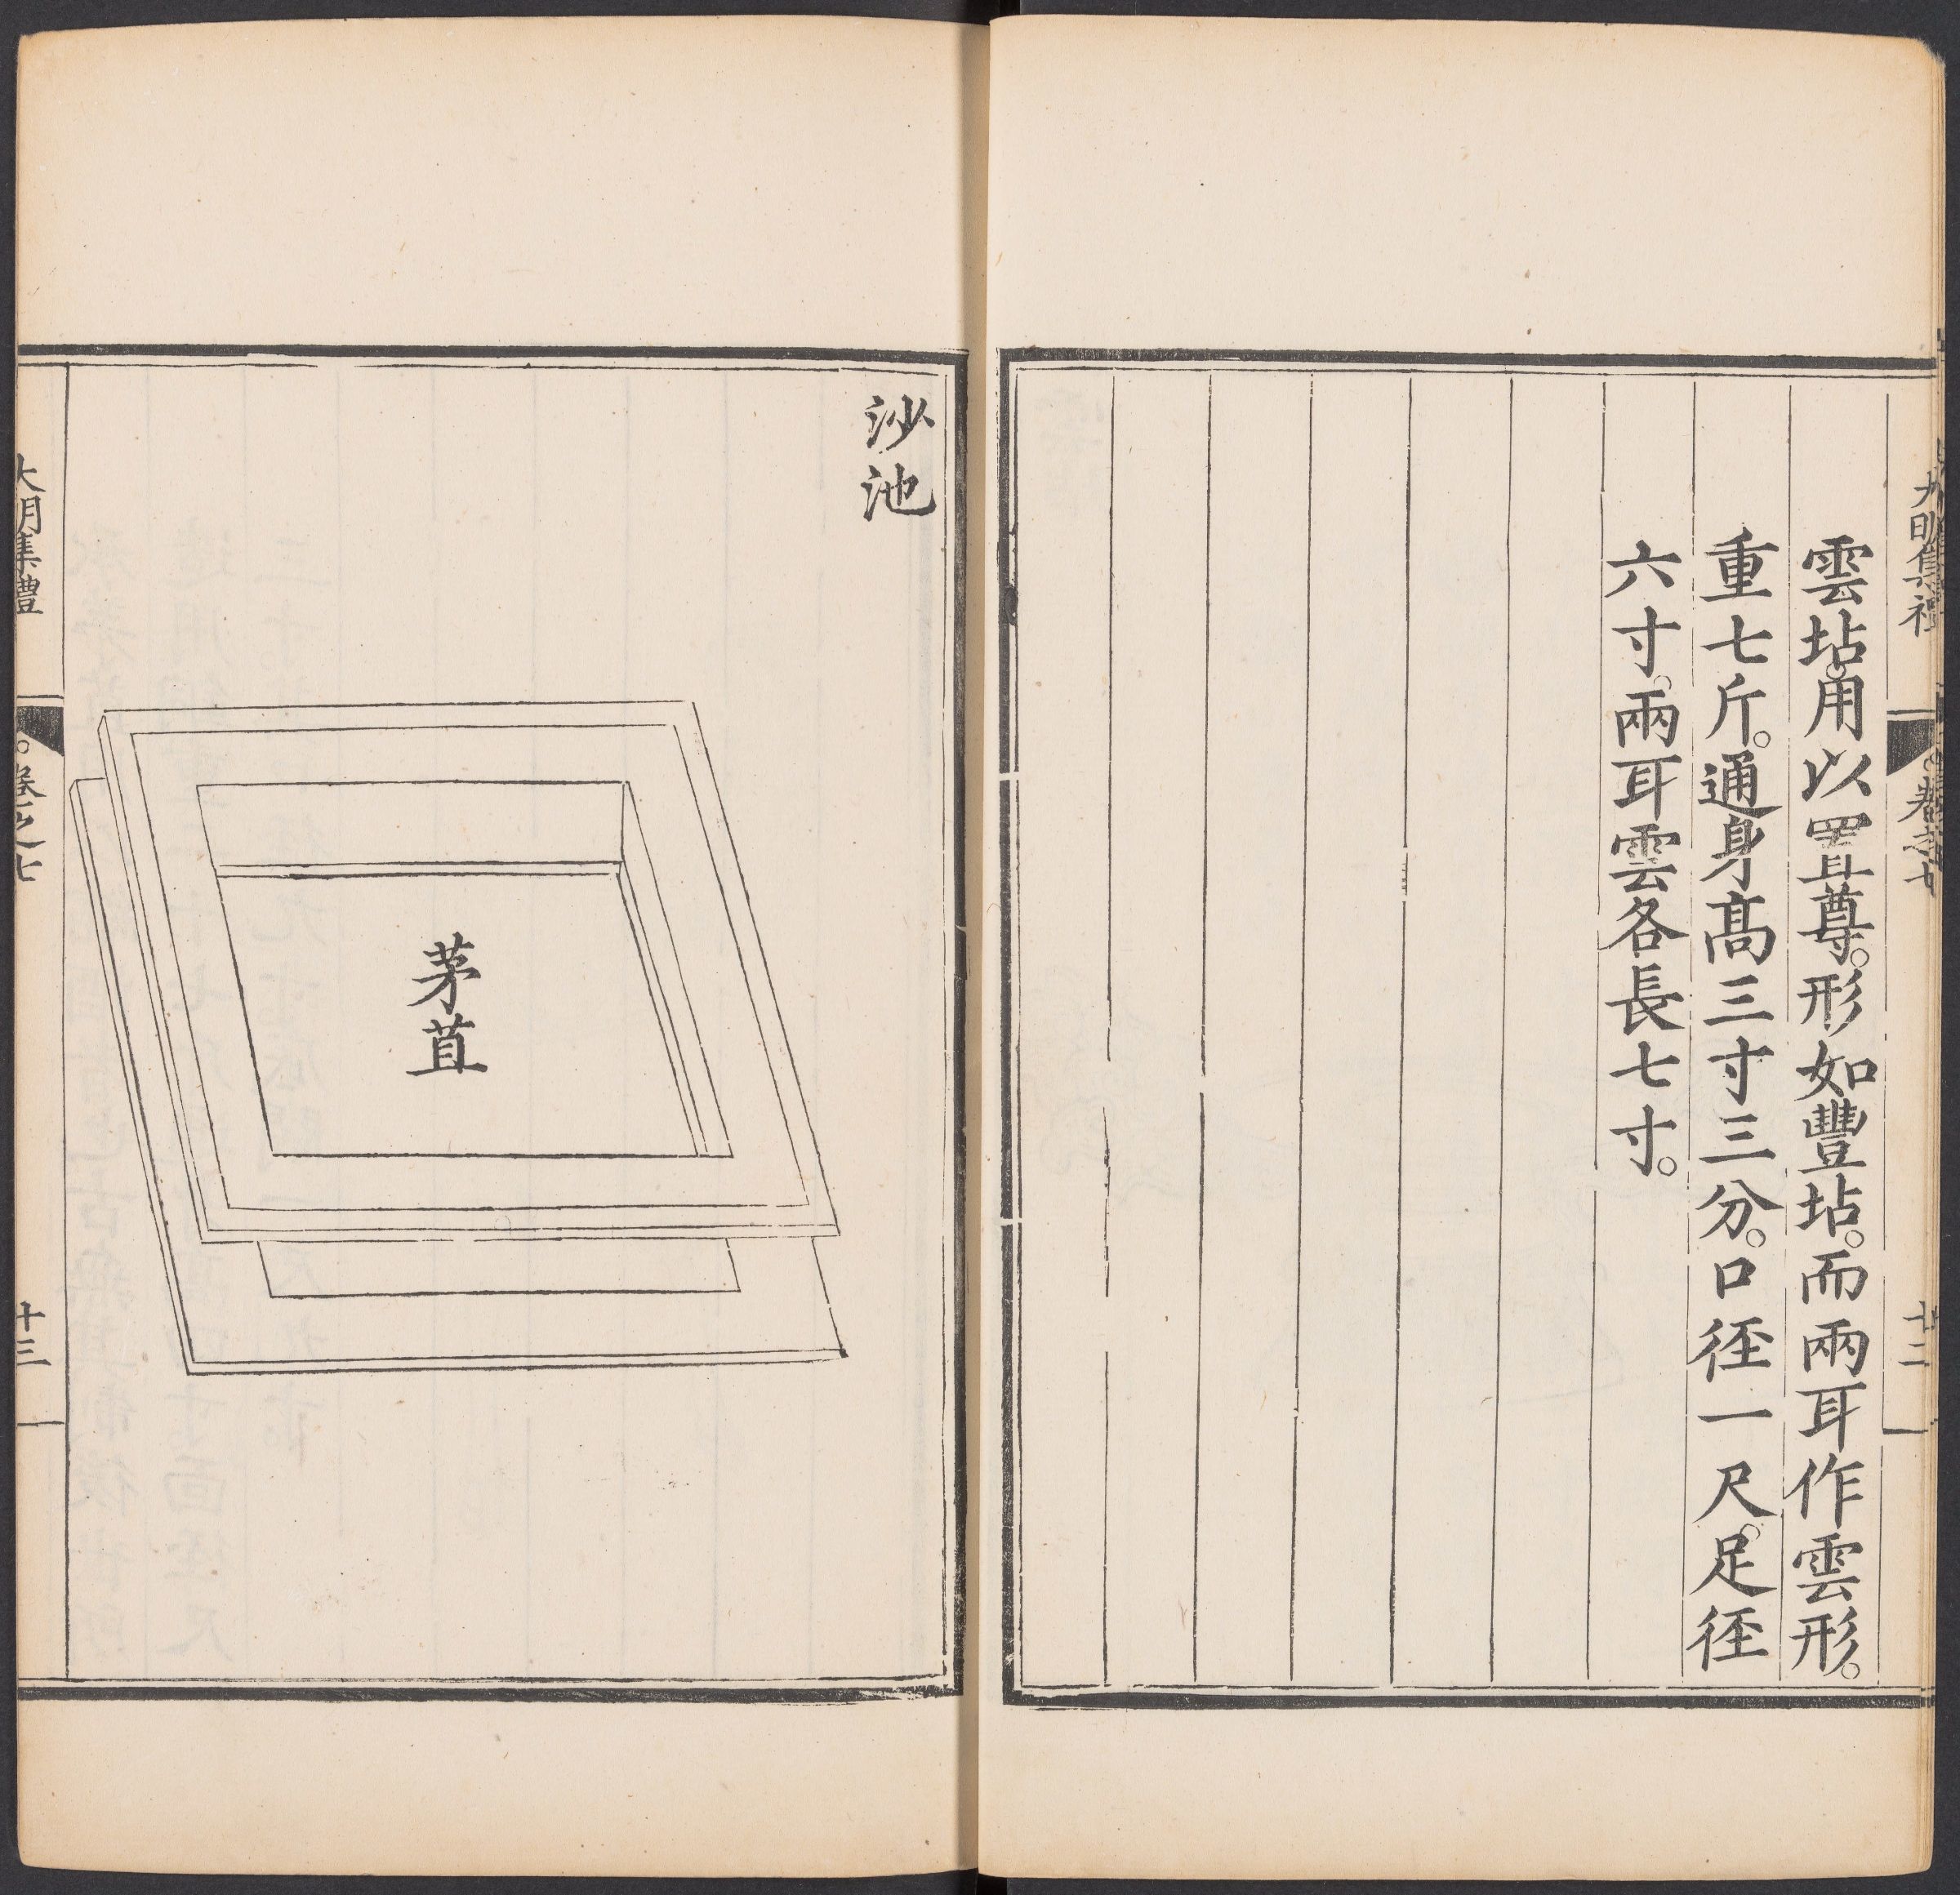 大明集禮
卷之七
十二
雲坫。用以置尊。形如豐坫。而兩耳作雲形。
重七斤。通身高三寸三分。口徑一尺。足徑
六寸。兩耳雲各長七寸。
沙池
茅苴
大明集禮
卷之七
十三